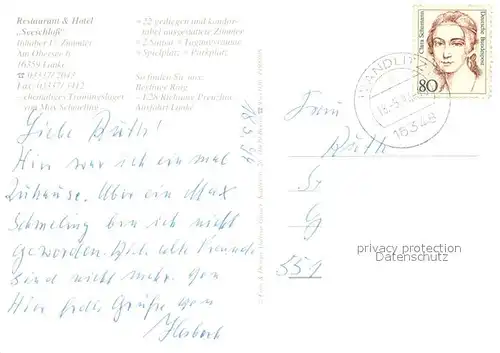 Restaurant & Hotel
"Seeschloß"
Inhaber U. Zimmer
Am Obersee 6
16359 Lanke
☎ 03337/2043
Fax 03337/3412
ehemaliges Trainingslager
von Max Schmeling
- 22 gediegen und komfor-
tabel ausgestattete Zimmer
Spielplatz - Parkplatz
So finden Sie uns:
Berliner Ring
Abfahrt Lanke
Clara Schumann
Deutsche Bundespost
80
WANDLITZ
16348
18.5.94
Liebe Ruth!
Hier war ich einmal
zuhause. Aber ein Max
Schmeling bin ich nicht
geworden. Die alte Freunde
sind nicht mehr. Von
Hier frdl. Grüße vom
Herbert
Frau
Ruth
Sr
G
551
privacy protection
Datenschutz